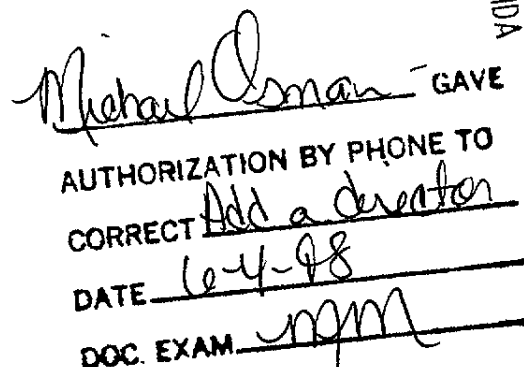 IDA
Michael Osman GAVE
AUTHORIZATION BY PHONE TO
CORRECT Add a director
DATE 6-4-98
DOC. EXAM. mm